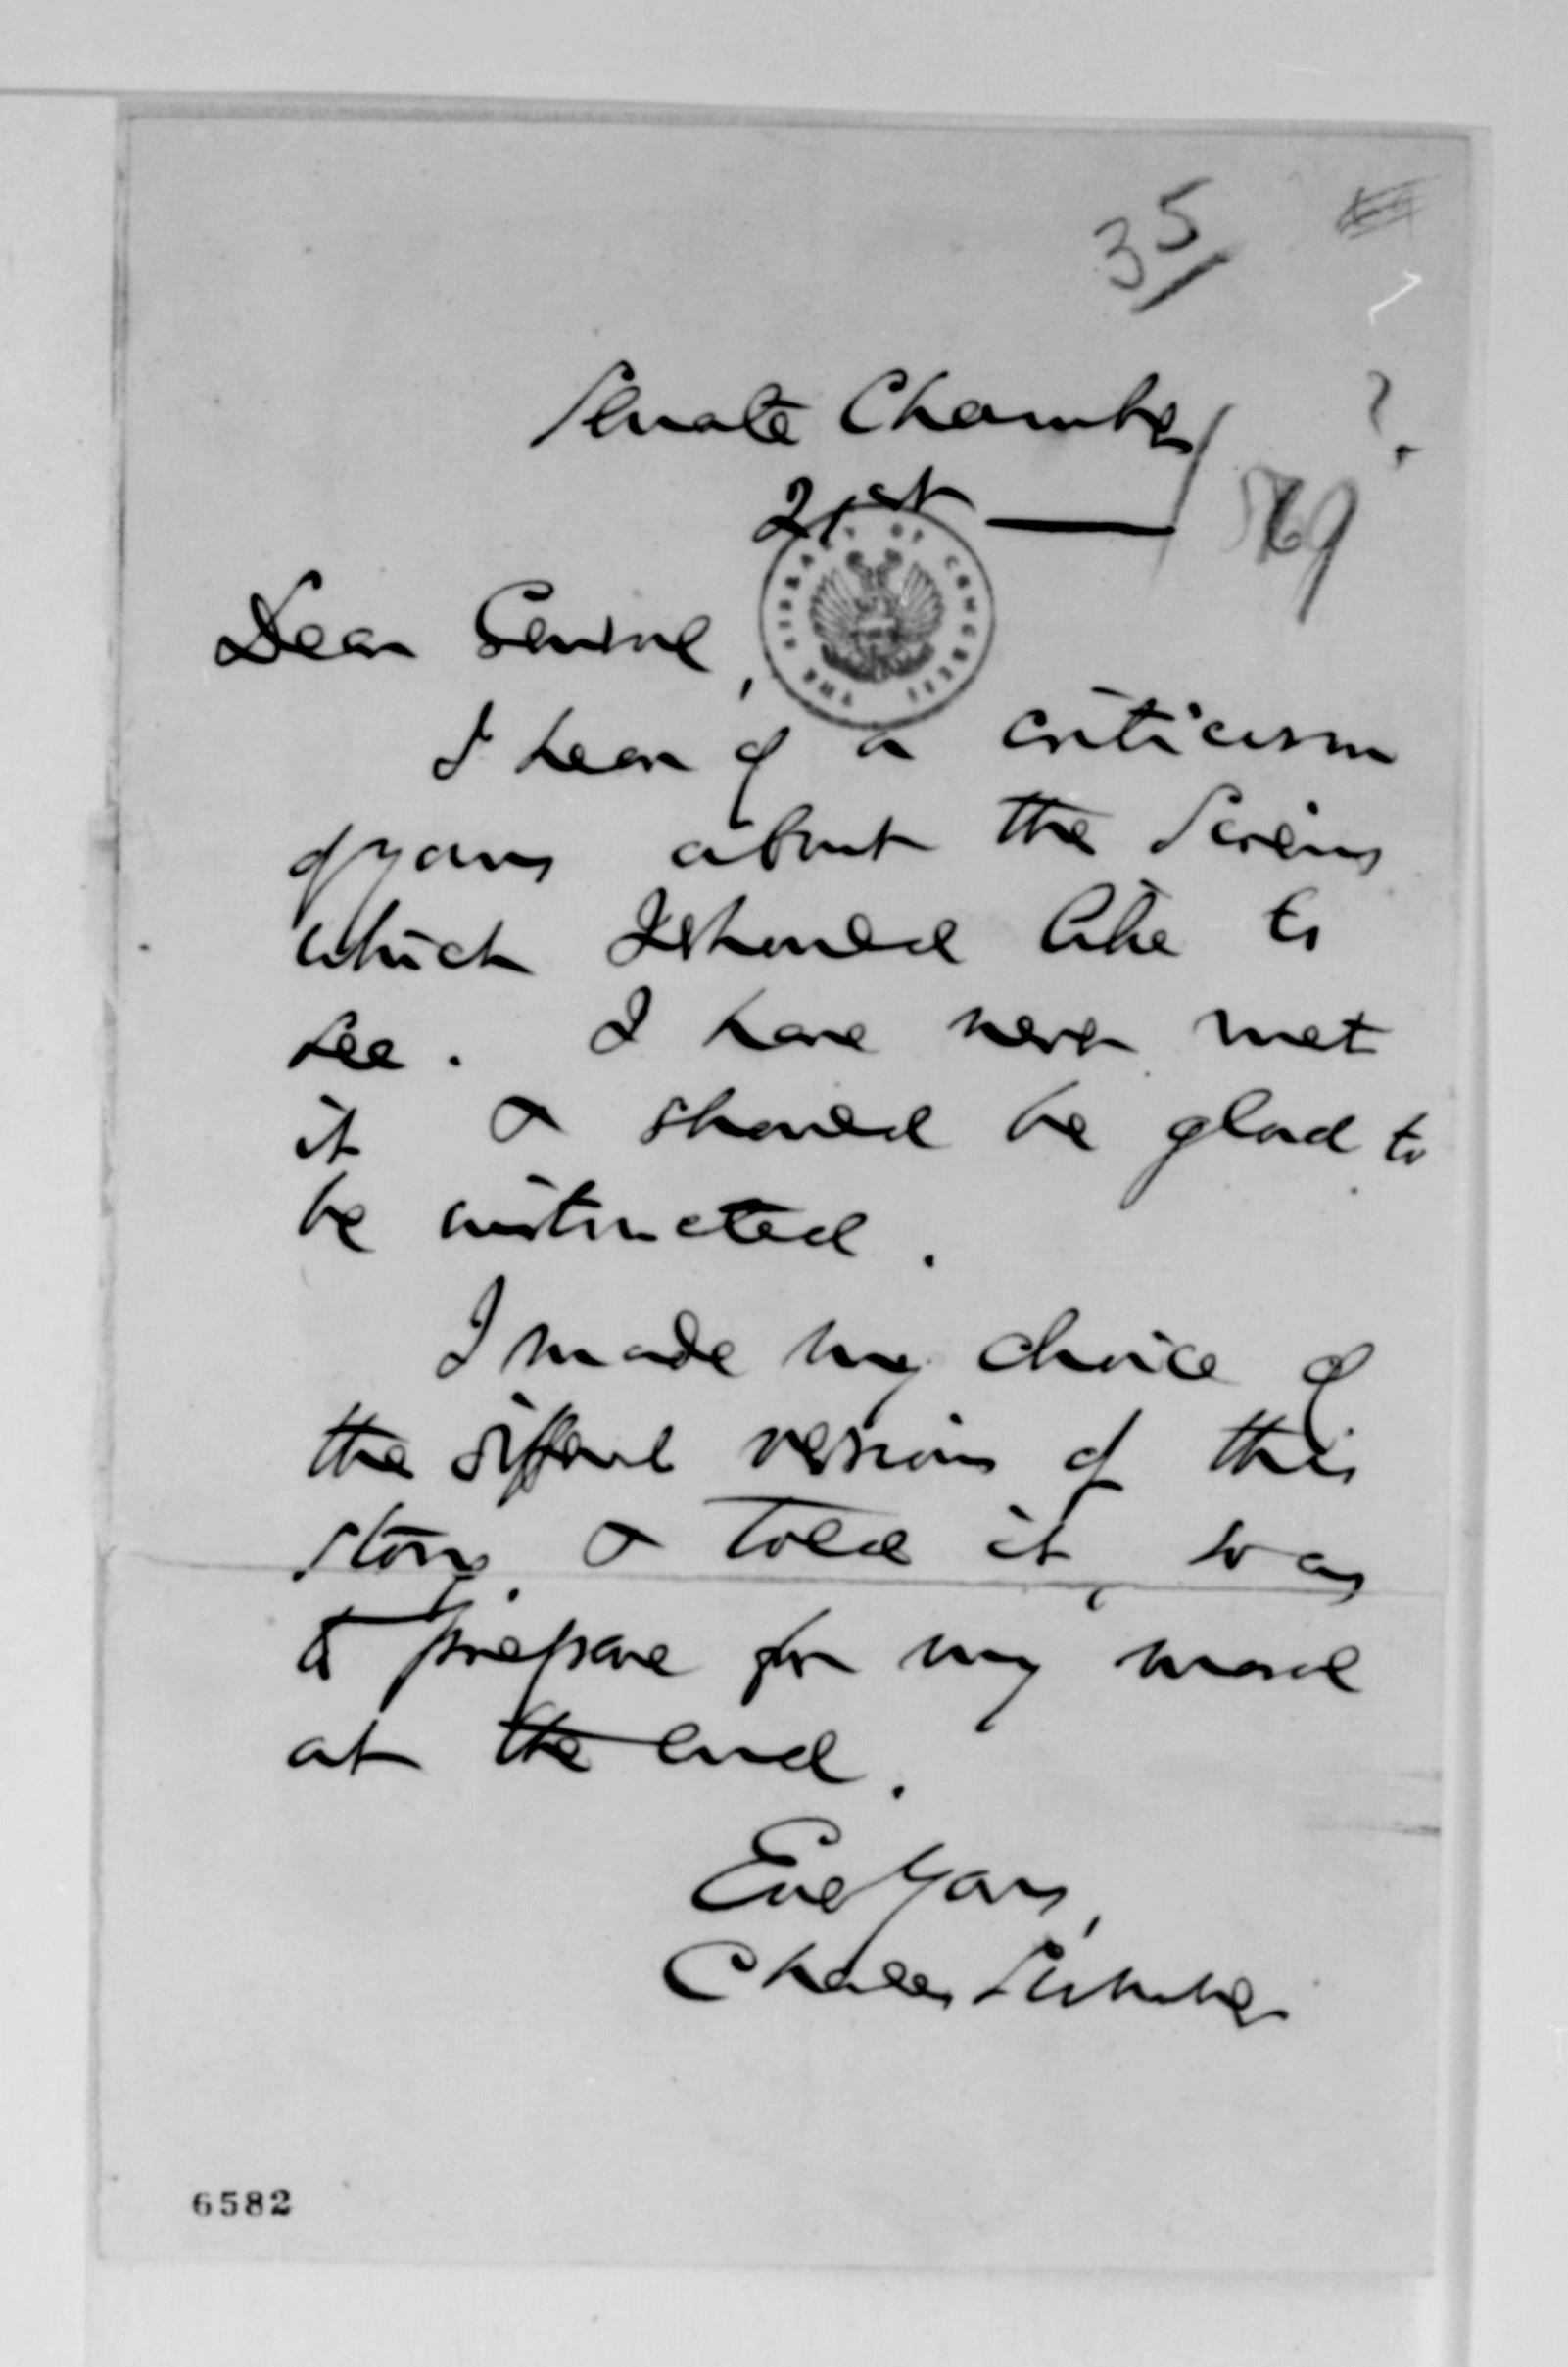 35/
Senate Chamber
?
21st —
69
THE LIBRARY OF CONGRESS
Dear General,
I hear of a criticism
of yours about the Sirens
which I should like to
see. I have never met
it & should be glad to
be instructed.
I made my choice of
the different versions of this
story, & told it, so as
to prepare for my moral
at the end.
Ever Yours,
Charles Sumner
6582